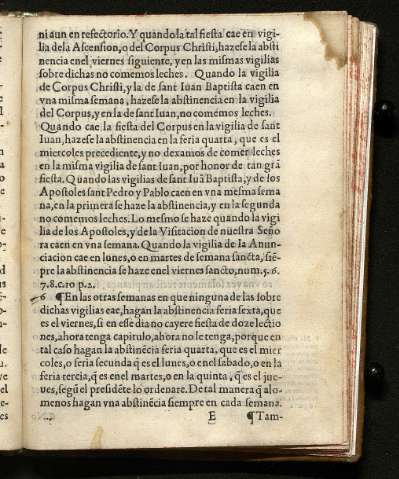 ni aun en refectorio. Y quando la tal fiesta cae en vigi-
lia dela Ascension, o del Corpus Christi, hazese la absti
nencia en el viernes siguiente, y en las mismas vigilias
sobre dichas no comemos leches. Quando la vigilia
de Corpus Christi, y la de sant Iuan Baptista caen en
vna misma semana, hazese la abstinencia en la vigilia
del Corpus, y en la de sant Iuan, no comemos leches.
Quando cae la fiesta del Corpus en la vigilia de sant
Iuan, hazese la abstinencia en la feria quarta, que es el
miercoles precediente, y no dexamos de comer leches
en la misma vigilia de sant Iuan, por honor de tan grã
fiesta. Quando las vigilias de sant Iuã Baptista, y de los
Apostoles sant Pedro y Pablo caen en vna mesma sema
na, en la primera se haze la abstinencia, y en la segunda
no comemos leches. Lo mesmo se haze quando la vigi
lia de los Apostoles, y de la Visitacion de nuestra Seño
ra caen en vna semana. Quando la vigilia de la Anun-
ciacion cae en lunes, o en martes de semana sancta, siẽ-
pre la abstinencia se haze en el viernes sancto, num. 5. 6.
7. 8. c. 10 p. 2.
6 ¶ En las otras semanas en que ninguna de las sobre
dichas vigilias cae, hagan la abstinencia feria sexta, que
es el viernes, si en esse dia no cayere fiesta de doze lectio
nes, ahora tenga capitulo, ahora no le tenga, porque en
tal caso hagan la abstinẽcia feria quarta, que es el mier
coles, o feria secunda q̃ es el lunes, o en el sabado, o en la
feria tercia, q̃ es en el martes, o en la quinta, q̃ es el jue-
ues, segũ el presidẽte lo ordenare. De tal manera q̃ alo-
menos hagan vna abstinẽcia siempre en cada semana.
E ¶ Tam-